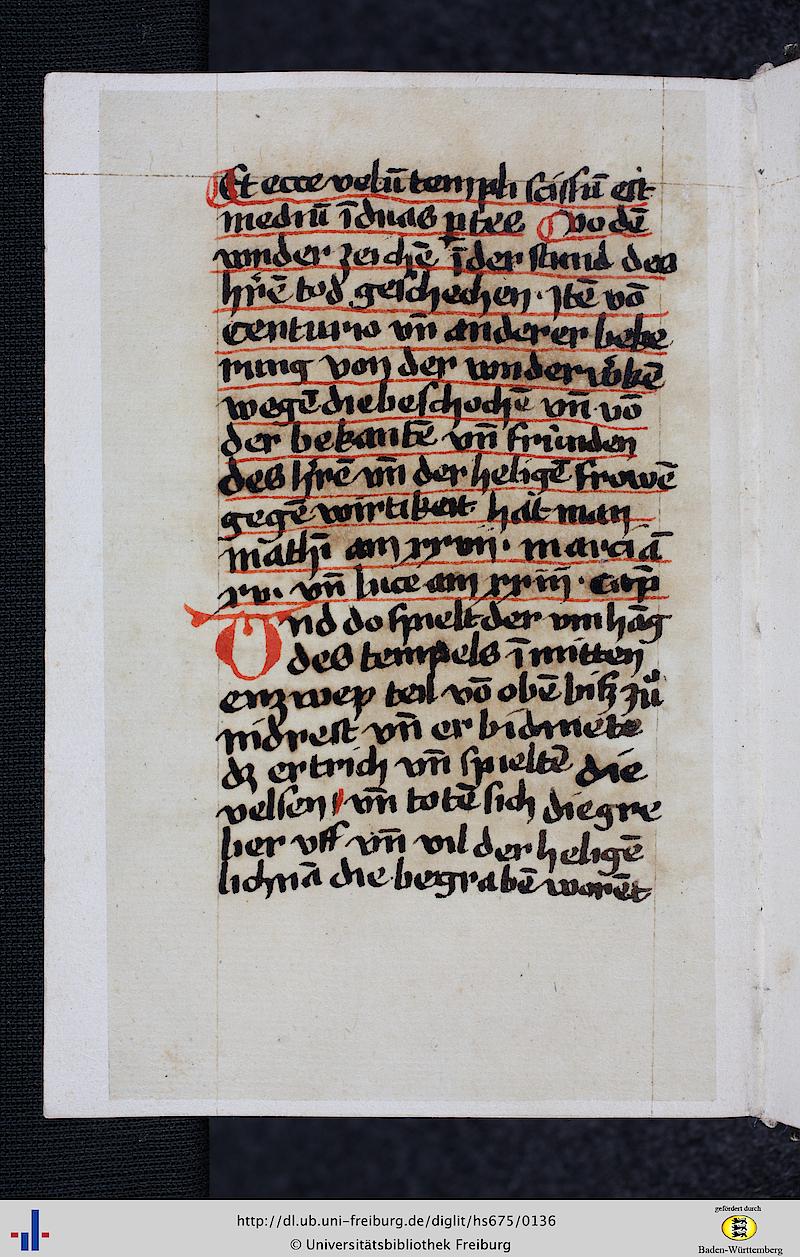 Et ecce velū templi scissū est
mediū ī duas ꝑtes Vo dē
wunder zeichē ī der stund des
hr̄ē tod geschechen · Itē vō
Centurio vn̄ anderer beke
rung von der wunderwͦkē
wegē die beschochē vn̄ vō
der bekantē vn̄ fründen
des hr̄ē vn̄ der heligē frowē
gegē wirtikeit · hāt man
mathī am xxvij · marci ā
xv · vn̄ luce am xxiij · cap̄
Vnd do spielt der vmhāg
des tempels ī mitten
enzwey teil vō obē bisz zuͦ
nidrest vn̄ er bidmēte
dz ertrich vn̄ spieltē die
velsen vn̄ totē sich die gre
ber vff vn̄ vil der heligē
lichnā die begrabē worēt
http://dl.ub.uni-freiburg.de/diglit/hs675/0136
© Universitätsbibliothek Freiburg
gefördert durch
Baden-Württemberg